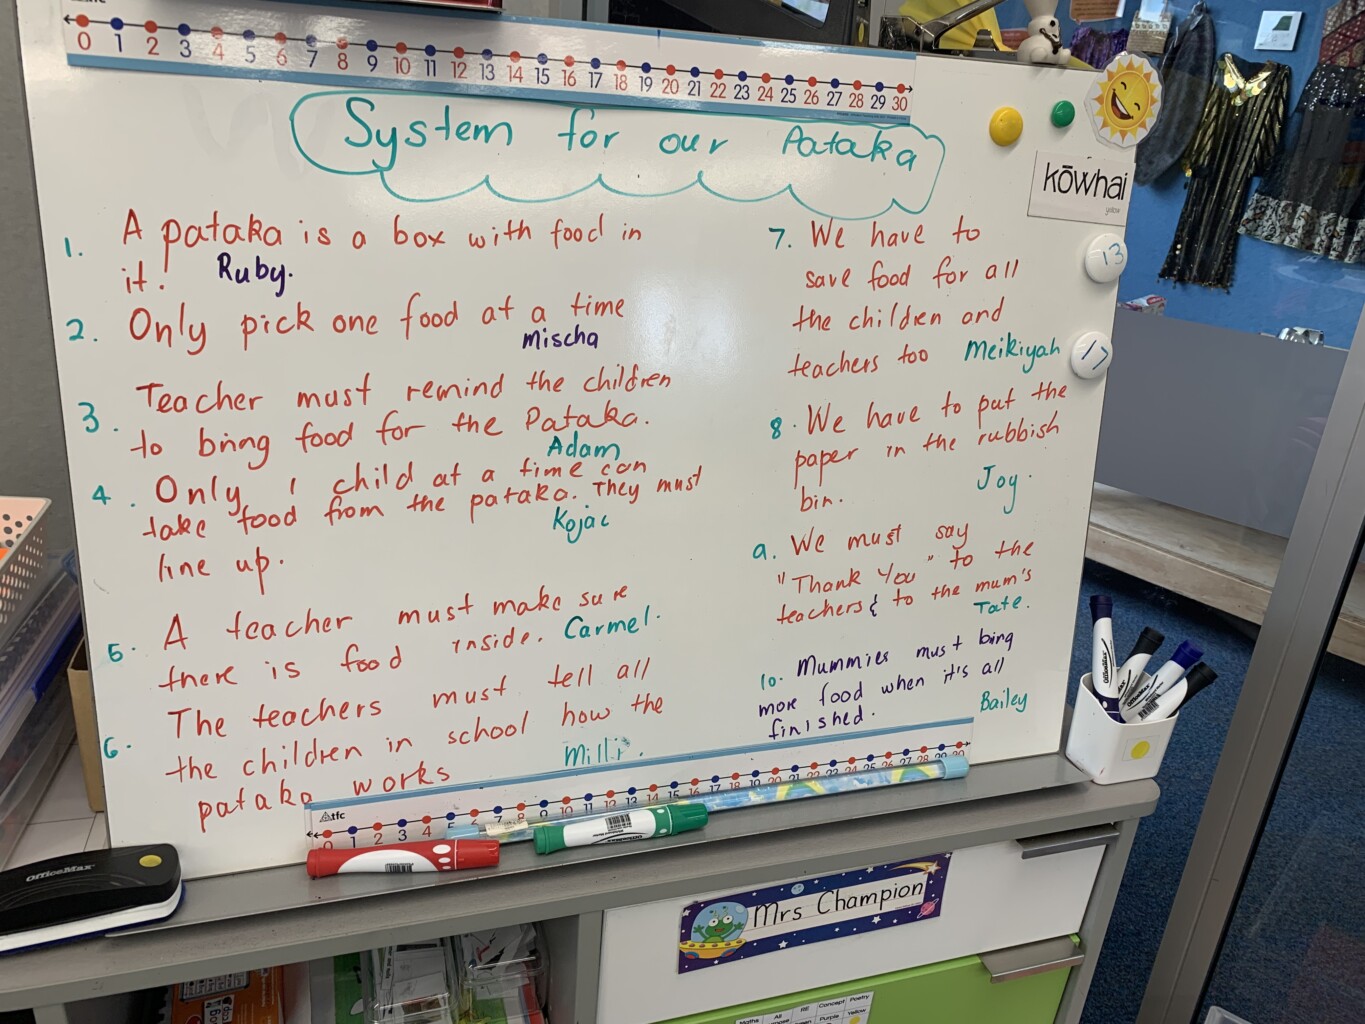 0 1 2 3 4 5 6 7 8 9 10 11 12 13 14 15 16 17 18 19 20 21 22 23 24 25 26 27 28 29 30
System for our Pataka
1. A pataka is a box with food in
it. Ruby.
2. Only pick one food at a time
mischa
3. Teacher must remind the children
to bring food for the Pataka.
Adam
4. Only 1 child at a time can
take food from the pataka. They must
Kojac
line up.
5. A teacher must make sure
there is food inside. Carmel.
6. The teachers must tell all
the children in school how the
pataka works Milli.
7. We have to
save food for all
the children and
teachers too Meikiyah
8. We have to put the
paper in the rubbish
bin. Joy.
9. We must say
"Thank You" to the
teachers & to the mum's
Tate.
10. Mummies must bring
more food when it's all
finished. Bailey
kōwhai
yellow
13
17
tfc
0 1 2 3 4 5 6 7 8 9 10 11 12 13 14 15 16 17 18 19 20 21 22 23 24 25 26 27 28 29 30
OfficeMax
OfficeMax
Mrs Champion
Maths All RE Concept Poetry
Purple Yellow